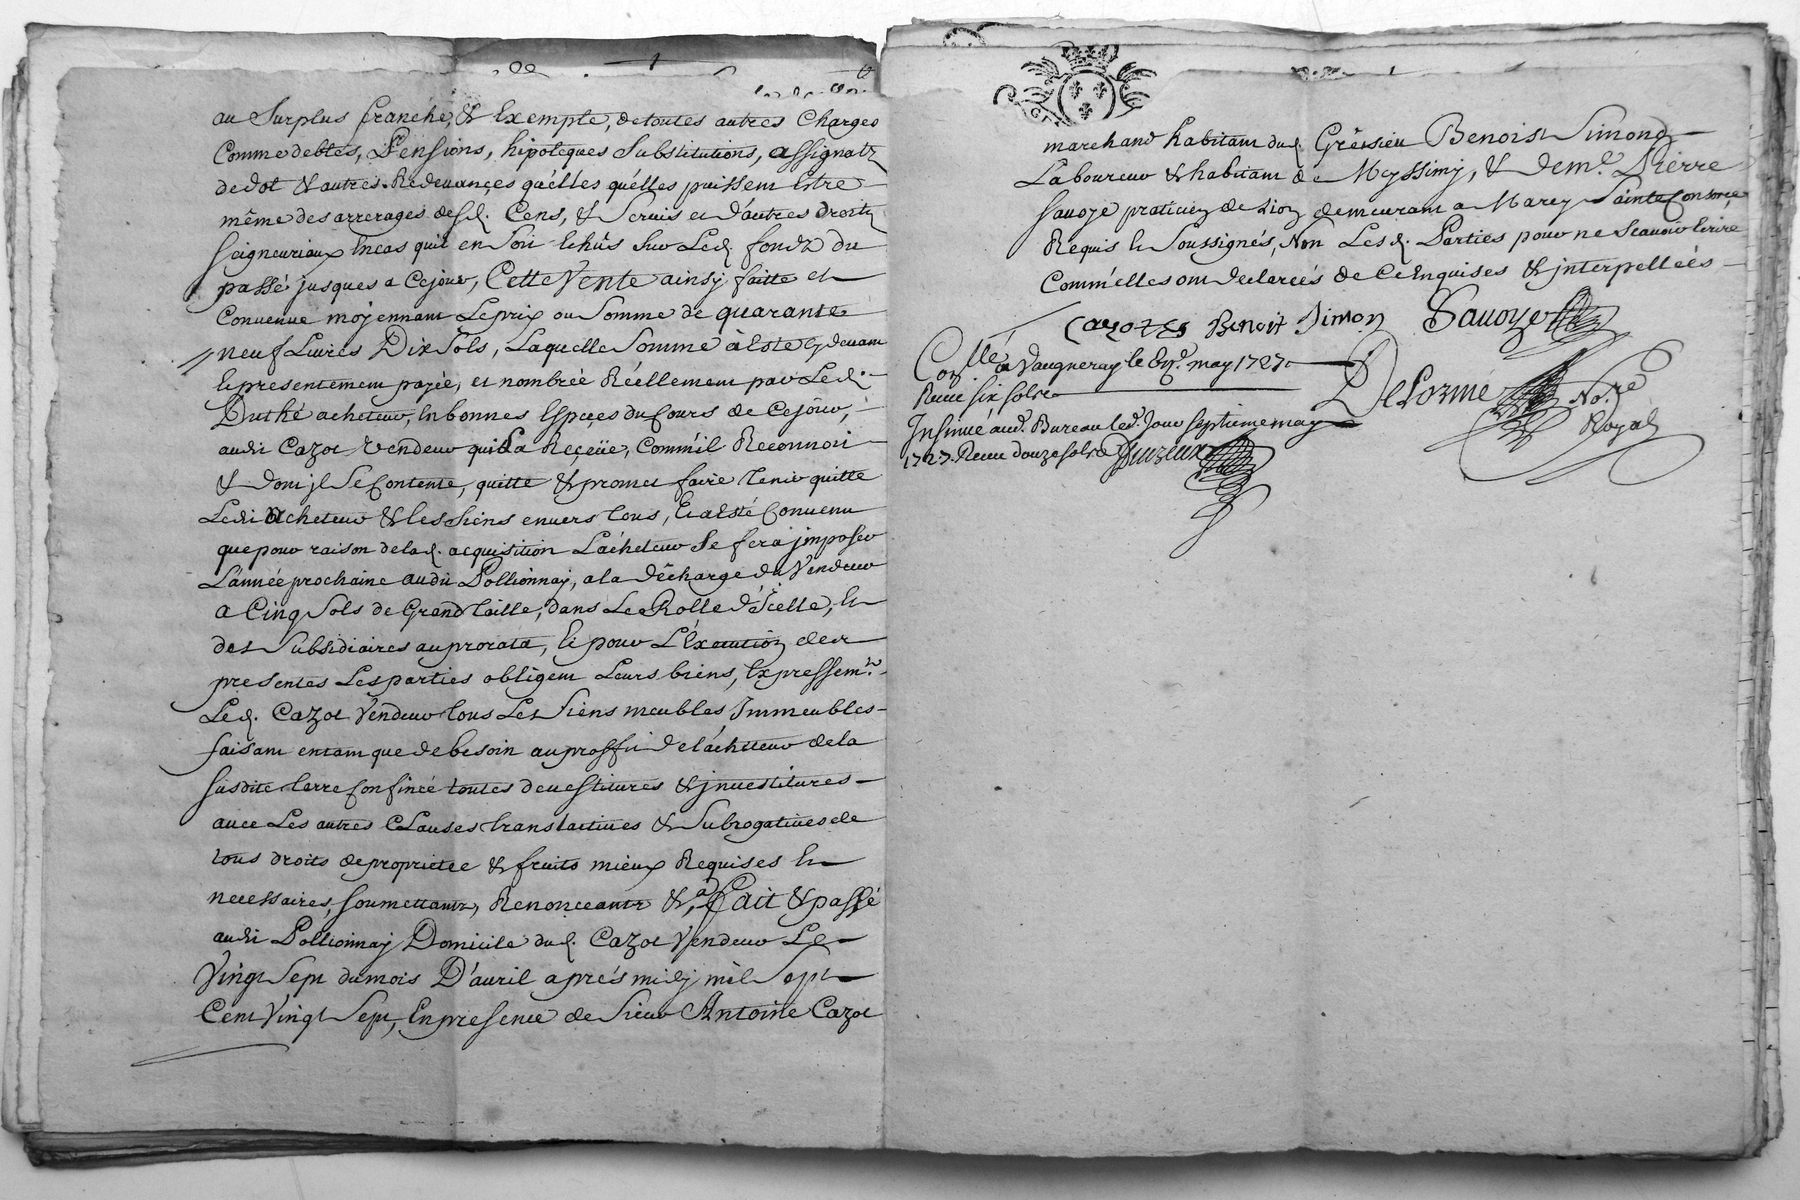 au Surplus franche, & Exempte, de toutes autres Charges
Comme debtes, Pensions, hipoteques Substitutions, assignatz
de dot & autres Redevançes quélles quélles puissent Estre
même des arrerages desd. Cens, & Servis et d'autres droitz
seigneuriaux Encas quil en soit Echûs Sur Led. fondz du
passé jusques a Cejour, Cette Vente ainsy faitte et
Convenue moÿennant Le prix ou Somme de quarante
neuf Livres Dix Sols, Laquelle Somme à Esté cy devant
Epresentement payée, et nombrée Réellement par Led.
Duthé acheteur, En bonnes Espéçes du Cours de Cejour,
audit Cazot Vendeur qui La Reçeüe, Comm'il Reconnoit
& dont jl Se Contente, quitte & promet faire tenir quitte
Ledit Acheteur & les Siens envers tous, Et a Esté Convenu
que pour raison de lad. acquisition Lachéteur Se fera jmposer
L'année prochaine audit Pollionnaÿ, a la décharge du Vendeur
a Cinq Sols de Grand taille, dans Le Rolle d'Icelle, Et
des Subsidiaires au prorata, Et pour L'Exécution des
presentes Les parties obligent Leurs biens, Expressem.t
Led. Cazot Vendeur tous Les Siens meubles Immeubles
faisant entant que de besoin au proffit de l'achetteur de la
susdite terre Confinée toutes devestitures & jnvestitures
avec Les autres Clauses translactives & Subrogatives de
tous droits de proprietée & fruits mieux Requises Et
necessaires, soumettantz, Renonceantz &.a Fait & passé
audit Pollionnaÿ Domicile dud. Cazot Vendeur Le
Vingt Sept du mois D'avril aprés midy mil Sept
Cent Vingt Sept, En presence de Sieur Antoine Cazot
marchand habitant dud. Grésieu Benoist Simond
Laboureur & habitant de Meyssimy, & de m.e Pierre
Savoye praticien de Lion demeurant a Marcy Sainte Consorçe
Requis Et Soussignés, Non Lesd. Parties pour ne Scavoir Ecrire
Comm'elles ont declareés de Ce Enquises & jnterpelleés
Cazotz Benoit Simon Savoye
Con.llé a Vaugneray le may 1727
Reçu six sols
DeLorme No.re
Royal
Insinué aud. Bureau led. Jour septieme may
1727. Recu douze sols